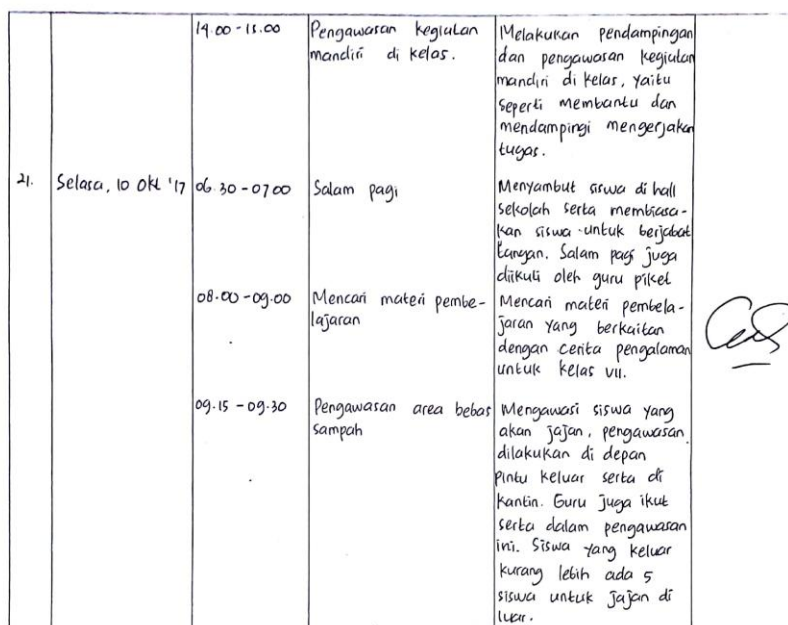 14.00 - 15.00 Pengawasan kegiatan Melakukan pendampingan
mandiri di kelas. dan pengawasan kegiatan
mandiri di kelas, yaitu
seperti membantu dan
mendampingi mengerjakan
tugas.
21. Selasa, 10 Okt '17 06.30 - 07.00 Salam pagi Menyambut siswa di hall
sekolah serta membiasa-
kan siswa untuk berjabat
tangan. Salam pagi juga
diikuti oleh guru piket
08.00 - 09.00 Mencari materi pembe- Mencari materi pembela-
lajaran jaran yang berkaitan
dengan cerita pengalaman
untuk kelas VII.
09.15 - 09.30 Pengawasan area bebas Mengawasi siswa yang
sampah akan jajan, pengawasan
dilakukan di depan
pintu keluar serta di
kantin. Guru juga ikut
serta dalam pengawasan
ini. Siswa yang keluar
kurang lebih ada 5
siswa untuk jajan di
luar.